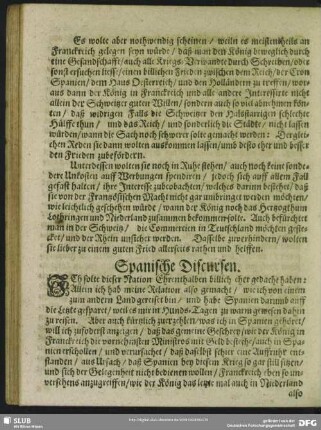 Es wolte aber nothwendig scheinen / weiln es meistentheils an
Franckreich gelegen seyn würde / daß man den König beweglich durch
eine Gesandschafft / auch alle Kriegs-Verwandte durch Schreiben / oder
sonst ersuchen liesse / einen billichen Frieden zwischen dem Reich / der Cron
Spanien / dem Haus Oesterreich / und den Holländern zu treffen / wor-
aus dann der König in Franckreich und alle andere Interessirte nicht
allein der Schweitzer guten Willen / sondern auch so viel abnehmen kön-
ten / daß widrigen Falls die Schweitzer den Nohtleidenden schlechte
Hülffe thun / und das Reich / und sonderlich die Städte / nicht lassen
würden / wann die Sach noch schwerer solte gemacht werden: Dergley-
chen Reden sie dann wolten auskommen lassen / umb desto eher und besser
den Frieden zubefördern.
Unterdessen wolten sie noch in Ruhe stehen / auch noch keine sonde-
re Unkosten auff Werbungen spendiren / jedoch sich auff allem Fall
gefast halten / ihre Interesse zubeobachten / welches darinn bestehet / daß
sie von der Französischen Macht nicht gar umbringet werden möchten /
wie leichtlich geschehen würde / wann der König noch das Herzogthum
Lothringen und Niederland zusammen bekommen solte. Auch befürchtet
man in der Schweitz / die Commercien in Teutschland möchten geste-
cket / und der Rhein unsicher werden. Dasselbe zuverhindern / wolten
sie lieber zu einem guten Fried allerseits rathen und helffen.
Spanische Discursen.
Ich solte dieser Nation Ehrenthalben billich eher gedacht haben:
Allein ich hab meine Relation also gemacht / wie ich von einem
zum andern Land gereiset bin / und habe Spanien darumb auff
die Letzt gesparet / weil es mir in Hunds-Tagen zu warm gewesen dahin
zu reisen. Aber auch kürtzlich zu erzehlen / was ich in Spanien gehöret /
will ich zuforderst anzeigen / daß das gemeine Geschrey / wie der König in
Franckreich die vornehmsten Ministros mit Geld bestehe / auch in Spa-
nien erschollen / und verursachet / daß daselbst schier eine Auffruhr ent-
standen / aus Ursach / daß Spanien bey diesem Krieg so gar still sitzen /
und sich der Gelegenheit nicht bedienen wollen / Franckreich eben so un-
versehens anzugreiffen / wie der König das letzte mal auch in Niederland
also